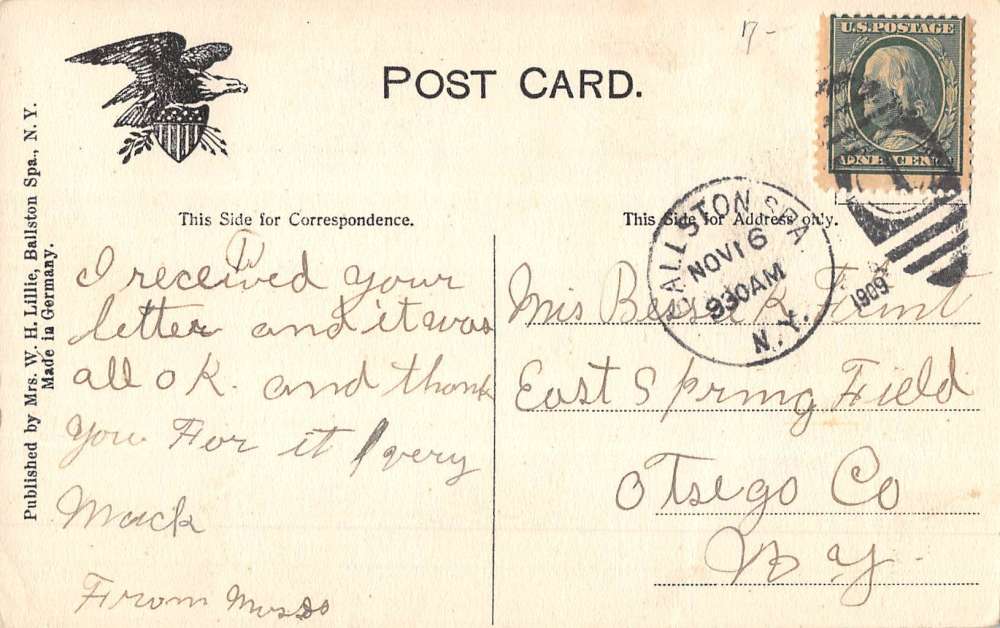 17-
POST CARD.
U.S. POSTAGE
ONE CENT
This Side for Correspondence.
This Side for Address only.
BALLSTON SPA
NOV 16
930AM
N.Y.
1909
I received your
letter and it was
all o K. and thank
you For it very
Muck
From
Published by Mrs. W. H. Lillie, Ballston Spa., N. Y.
Made in Germany.
Miss Bessie K Flint
East Spring Field
Otsego Co
N Y.